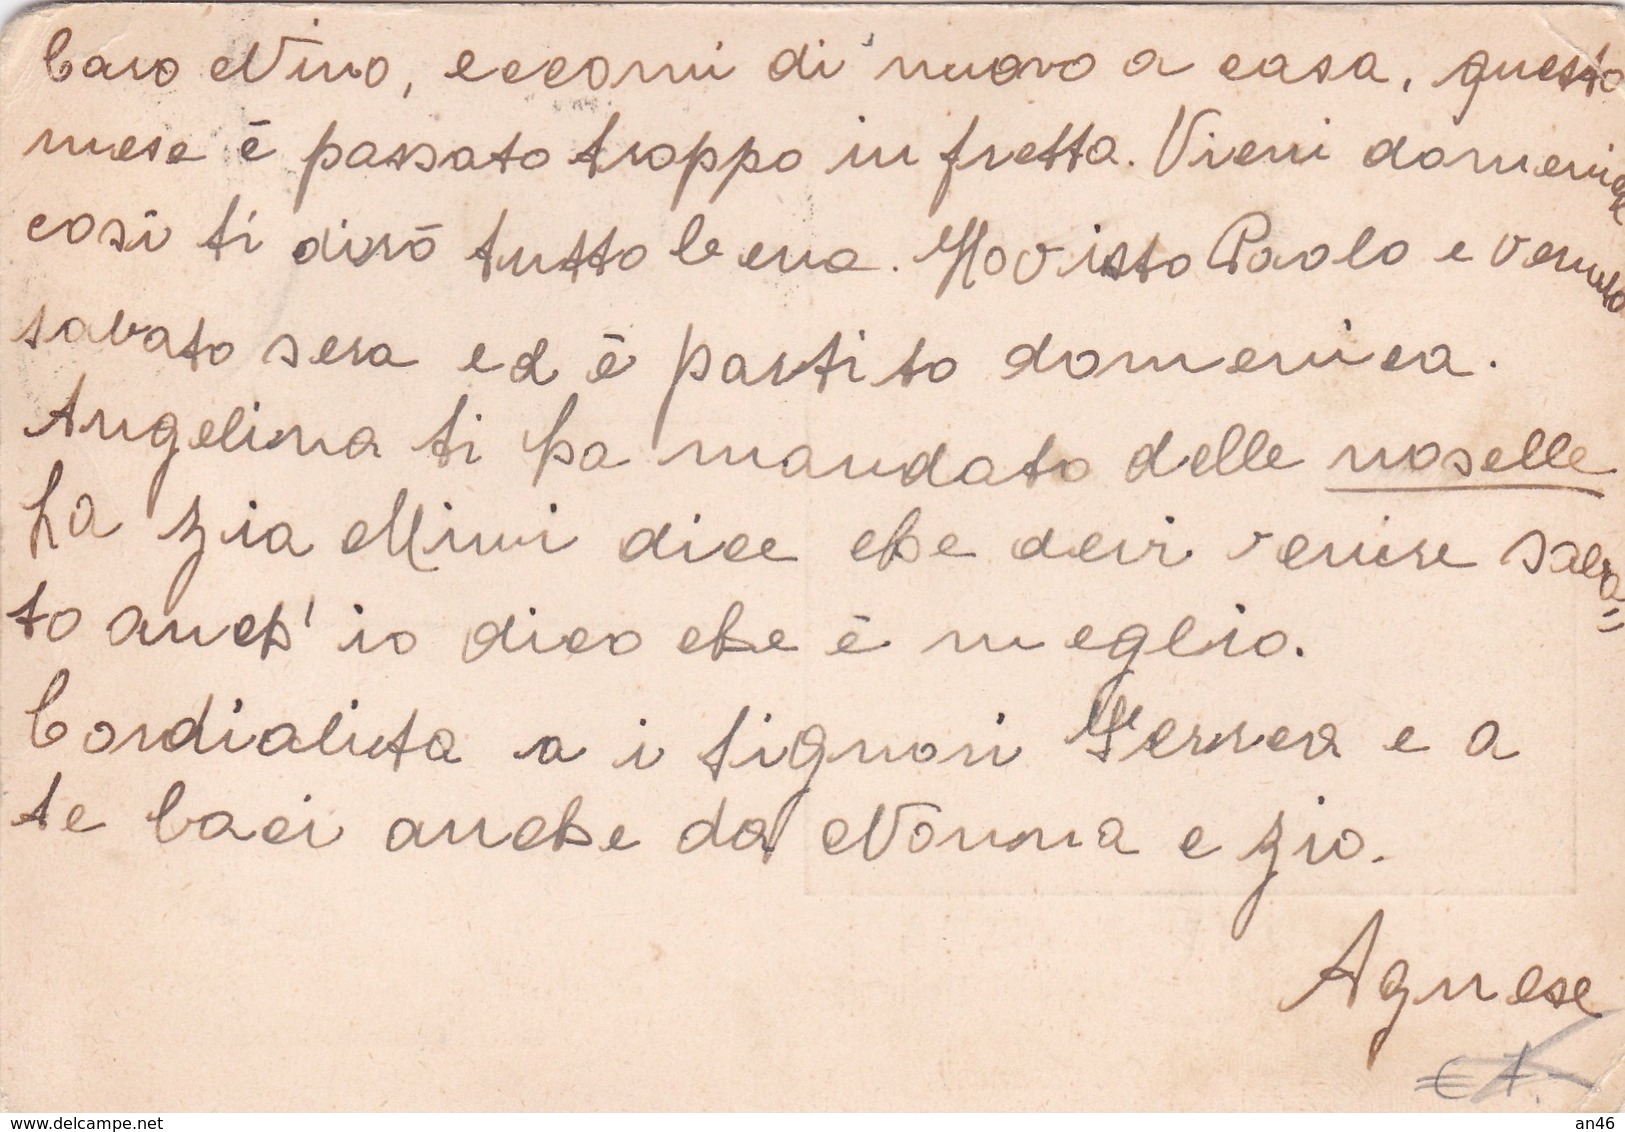 Caro Nino, eccomi di nuovo a casa, questo
mese è passato troppo in fretta. Vieni domenica
così ti dirò tutto bene. Ho visto Paolo e venuto
sabato sera ed è partito domenica.
Angelina ti ha mandato delle noselle
La zia Mimi dice che devi venire saba=
to anch'io dico che è meglio.
Cordialita a i signori Ferrea e a
te baci anche da Nonna e zio.
Agnese
delcampe.net
an46